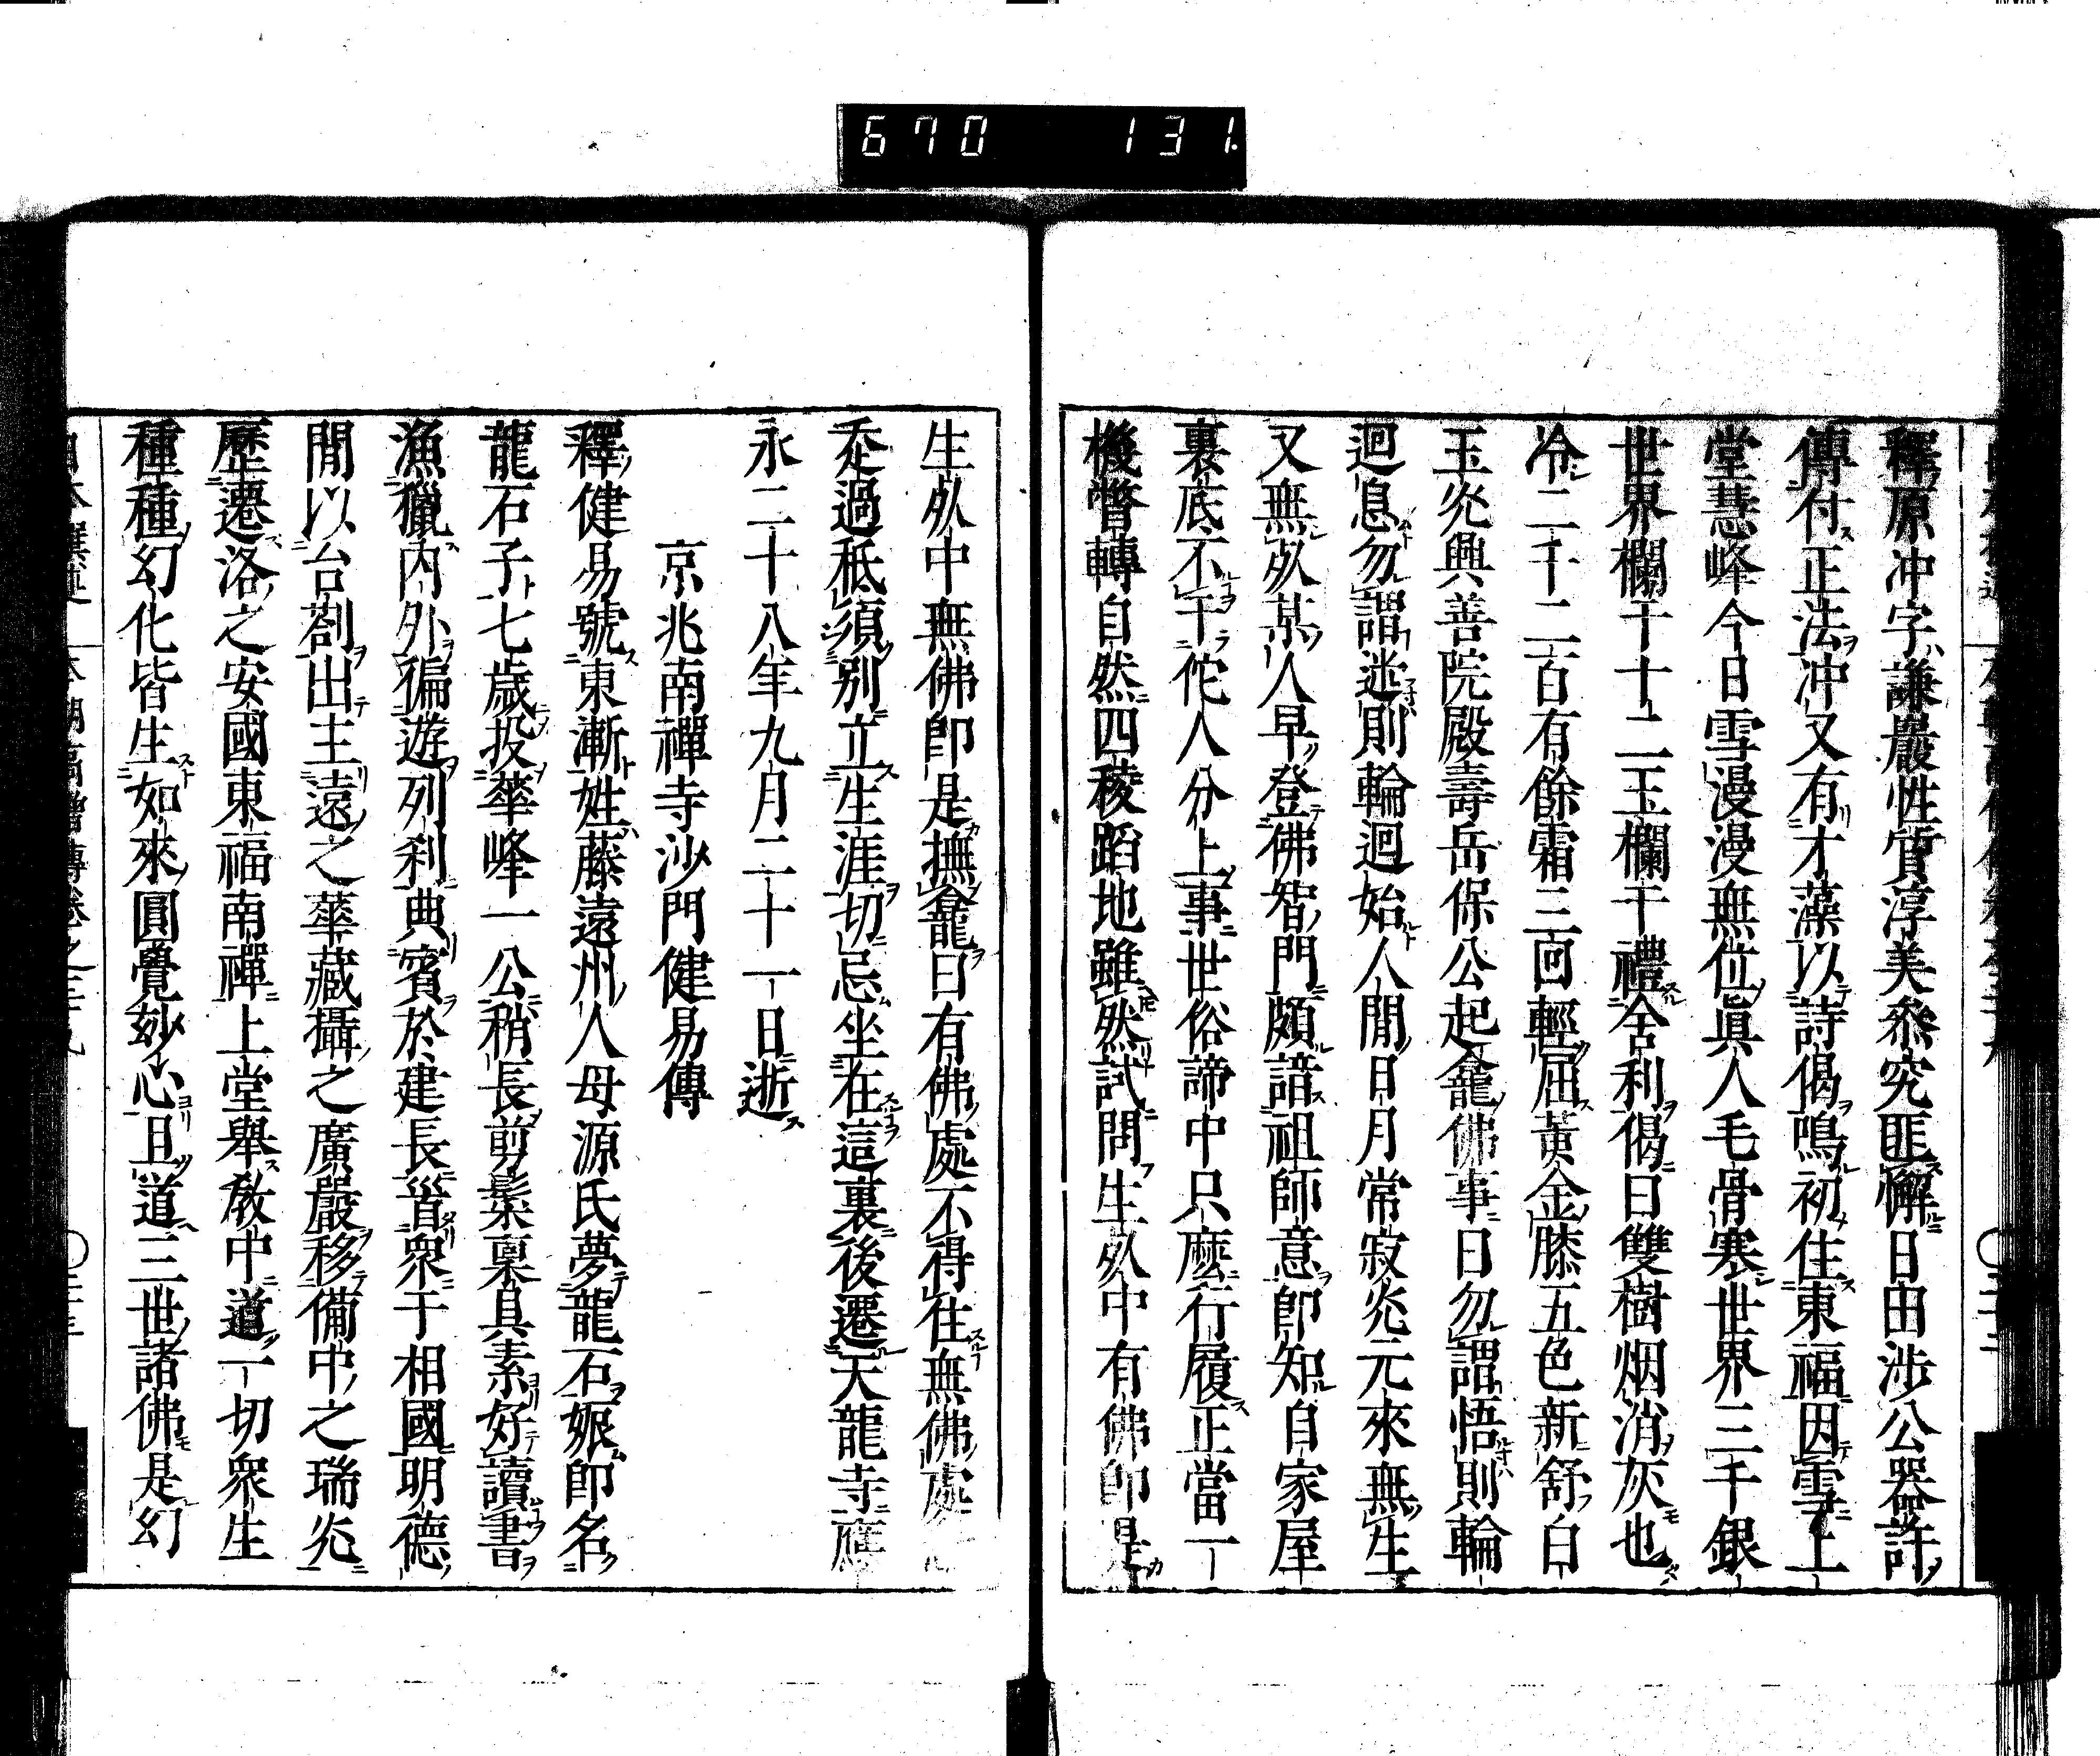 670 131.
釋原冲字謙巖性質淳美叅究匪懈日由涉公器許
傳付正法冲又有才藻以詩偈鳴初住東福因雪上
堂慧峰今日雪漫漫無位眞人毛骨寒世界三千銀
世界欄干十二玉欄干禮舍利偈曰雙樹烟消灰也
冷二千二百有餘霜三回輕屈黃金膝五色新舒白
玉光興善院殿壽岳保公起龕佛事曰勿謂悟則輪
迴息勿謂迷則輪迴始人間日月常寂光元來無生
又無死某人早登佛智門頗諳祖師意卽知自家屋
裏底不干佗人分上事世俗諦中只麼行履正當一
機瞥轉自然四稜蹈地雖然試問生死中有佛卽是
生死中無佛卽是撫龕曰有佛處不得住無佛處
走過秪須別立生涯切忌坐在這裏後遷天龍寺應
永二十八年九月二十一日逝
京兆南禪寺沙門健易傳
釋健易號東漸姓藤遠州人母源氏夢龍石娠卽名
龍石子七歲投華峰一公稍長剪髮稟具素好讀書
漁獵內外徧遊列刹典賓於建長首衆于相國明德
間以台劄出主遠之華藏攝之廣嚴移備中之瑞光
歷遷洛之安國東福南禪上堂舉敎中道一切衆生
種種幻化皆生如來圓覺妙心且道三世諸佛是幻